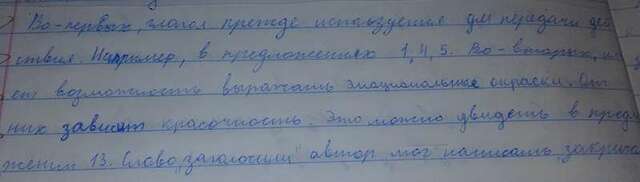 Во-первых, глагол прежде используется для передачи дей
ствия. Например, в предложениях 1,4,5. Во-вторых, им
ет возможность выражать эмоциональные окраски. От
них зависят красочность. Это можно увидеть в предл
жении 13. Слово "заголосили" автор мог написать закрича